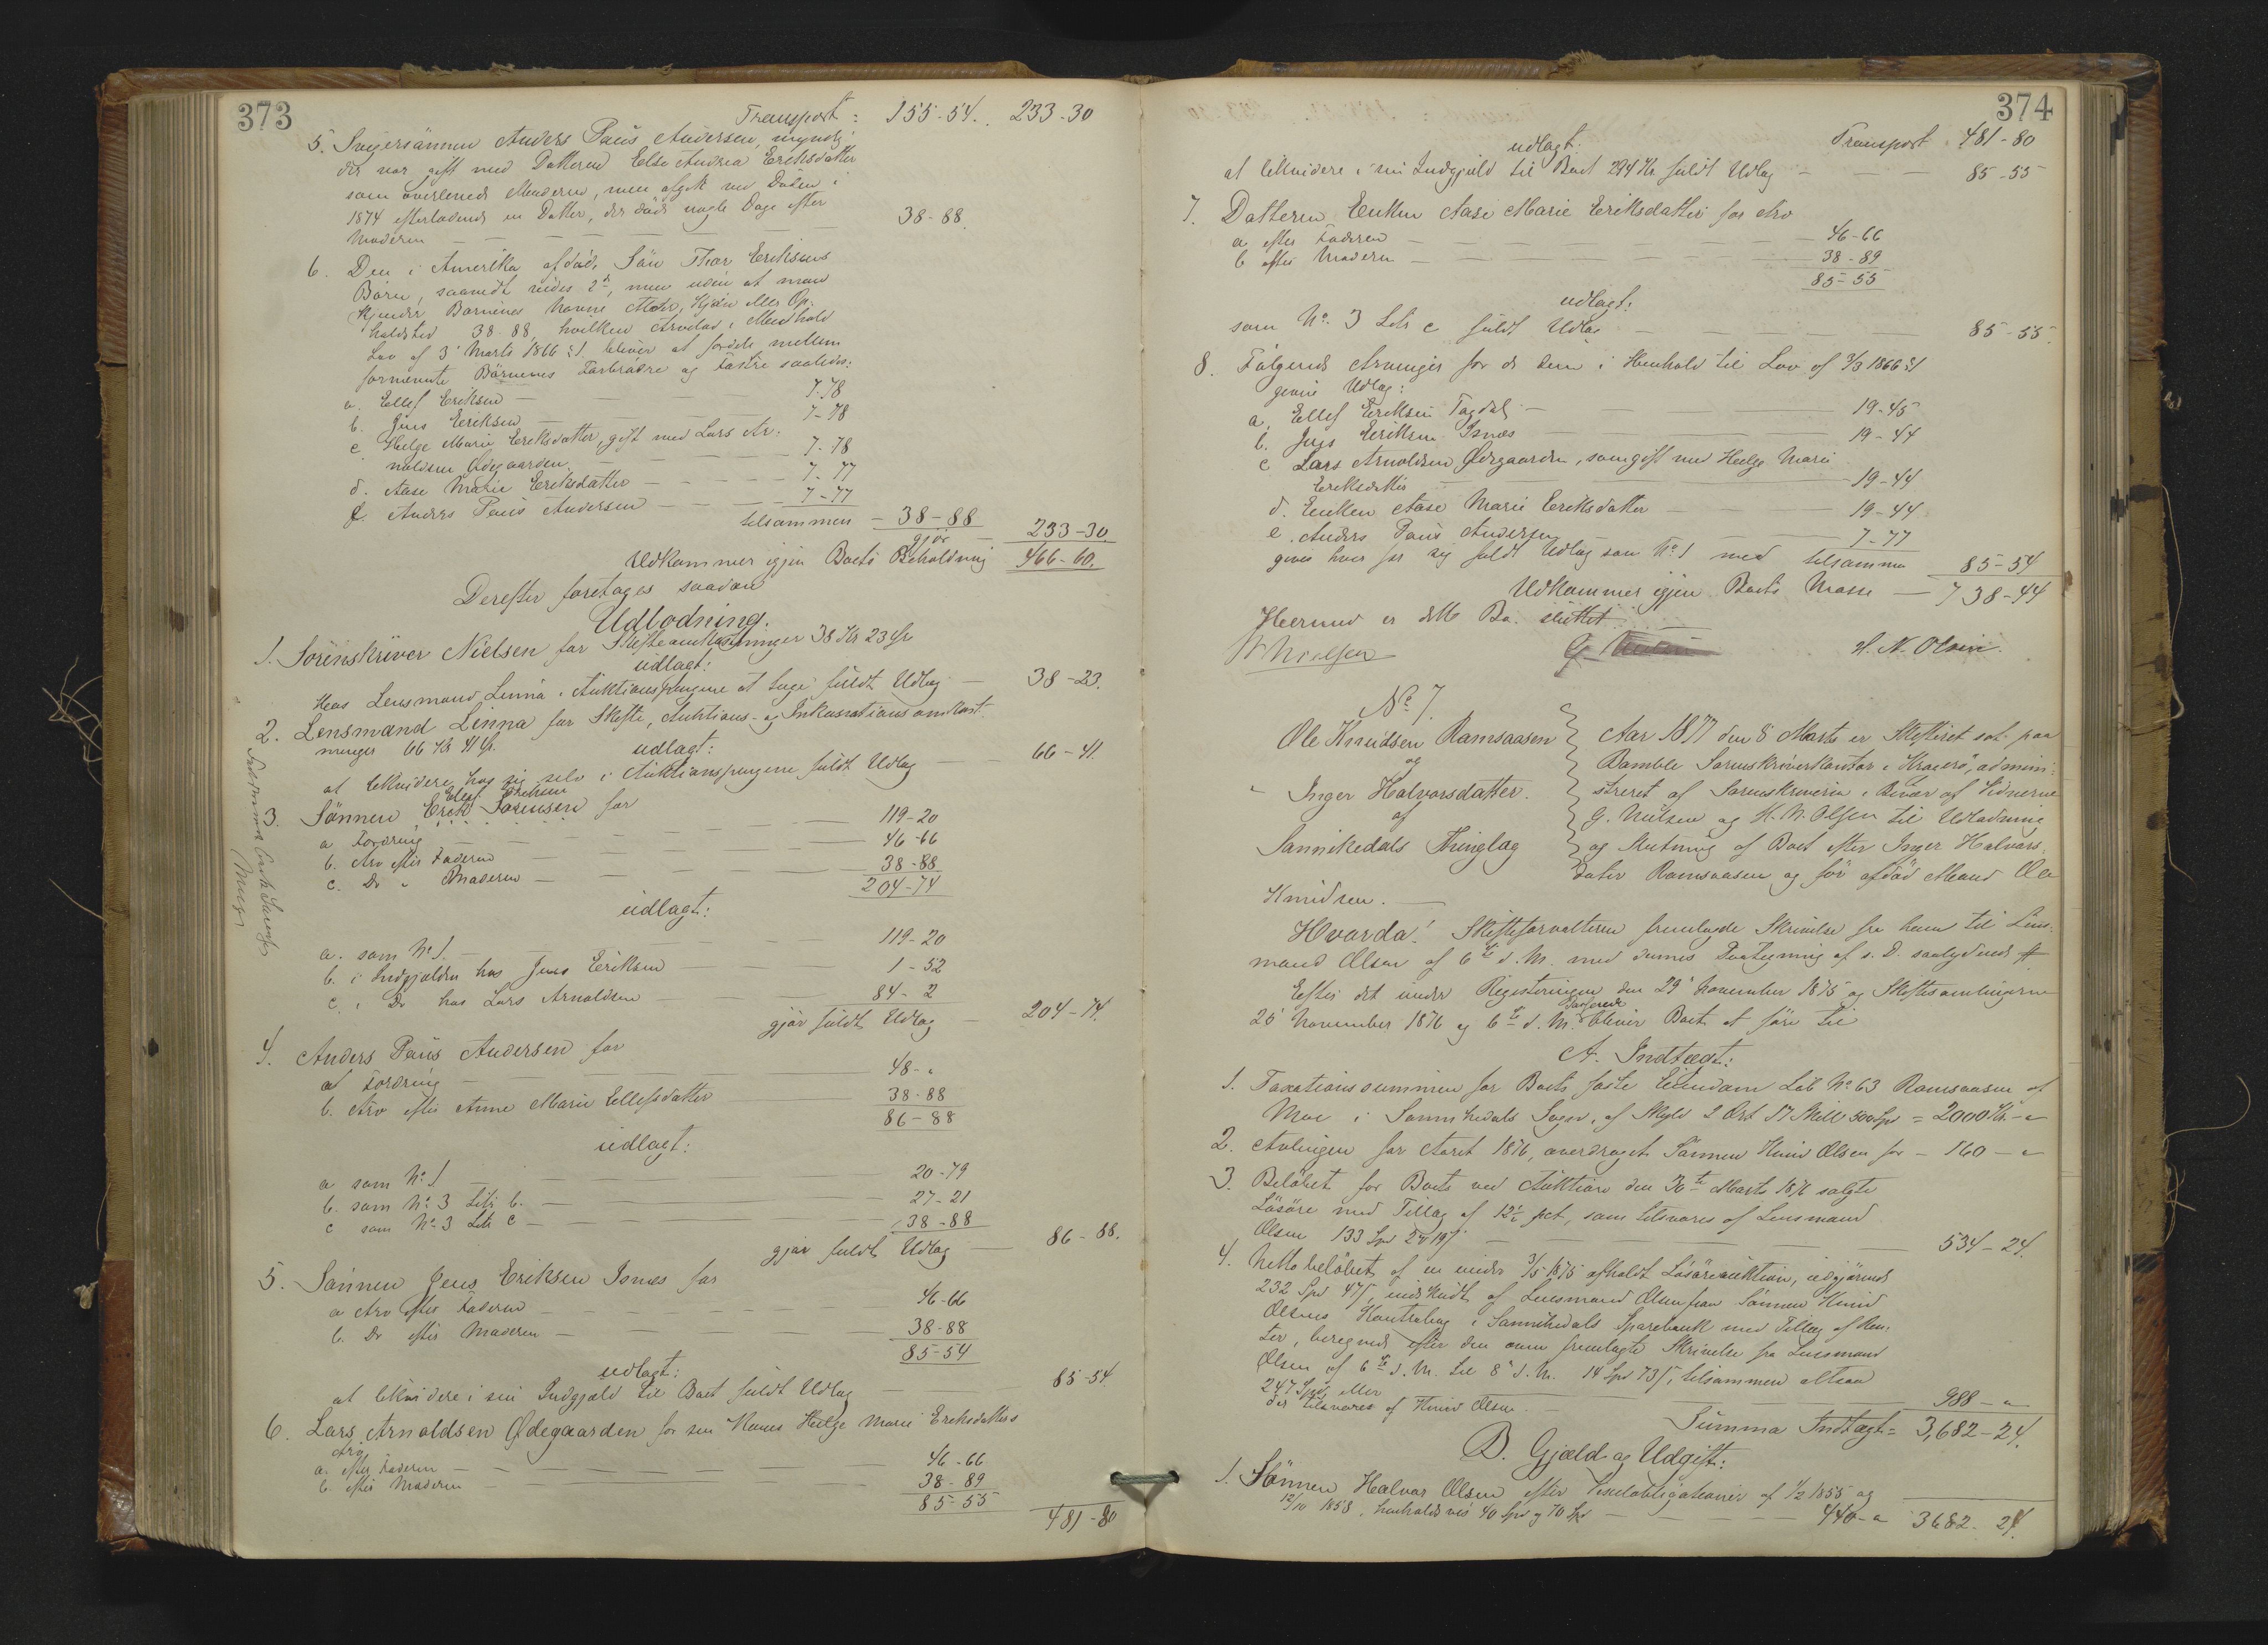 373
Transport: 155-54. 233-30
5. Svigersønnen Anders Paus Andersen, myndig
der var gift med Datteren Else Andrea Eriksdatter
som overlevede Moderen, men afgik ved Døden i
1874 efterladende en Datter, der døde nogle Dage efter
Moderen 38-88.
6. Den i Amerika afdøde Søn Thor Eriksens
Børn, saavidt vides 2de, men uden at man
kjender Børnenes Navne Alder, Kjøn eller Op-
holdsted 38-88, hvilken Arvelod i Medhold
Lov af 3 Marts 1866 § 1 bliver at fordele mellem
fornævnte Børnenes Farbrødre og Fastre saaledes:
a. Ellef Eriksen 7-78
b. Jens Eriksen 7-78
c Helge Marie Eriksdatter, gift med Lars Ar-
noldsen Ødegaarden 7-78
d. Aase Marie Eriksdatter 7-77
e. Anders Paus Andersen 7-77
tilsammen 38-88
gjør 233-30
Udkommer igjen Boets Beholdning 466-60.
Derefter foretages saadan
Udlodning.
1. Sorenskriver Nielsen for Skifteomkostninger 38 Kr 23 Ør
udlagt:
Hos Lensmand Linna i Auktionspengene at tage fuldt Udlæg 38-23.
2. Lensmand Linna for Skifte, Auktions- og Inkassations omkost-
ninger 66 Kr 41 Ør.
udlagt:
at likvidere hos sig selv i Auktionspengene fuldt Udlæg 66-41.
3. Sønnen Erek Sørensen for
Ellef Eriksen
a Fordring 119-20
b. Arv efter Faderen 46-66
c. Do " Moderen 38-88
204-74
udlagt:
a. som No 1. 119-20
b. i Indgjælden hos Jens Eriksen 1-52
c. i Do hos Lars Arnoldsen 84-2
gjør fuldt Udlæg 204-74.
4. Anders Paus Andersen for
a Fordring 48-"
b. Arv efter Anne Marie Ellefsdatter 38-88
86-88
udlagt:
a som No 1 20-79
b. som No 3 Litr b. 27-21
c som No 3 Litr c 38-88
gjør fuldt Udlæg 86-88.
5. Sønnen Jens Eriksen Isnæs for
a Arv efter Faderen 46-66
b. Do efter Moderen 38-88
85-54
udlagt:
at likvidere i sin Indgjæld til Boet fuldt Udlæg 85-54
6. Lars Arnoldsen Ødegaarden for sin Kones Helge Marie Eriksdatters
Arv
a. efter Faderen 46-66
b. efter Moderen 38-89
85-55
481-80
374
Transport 481-80
udlagt:
at likvidere i sin Indgjæld til Boet 294 Kr fuldt Udlæg 85-55
7. Datteren Enken Aase Marie Eriksdatter for Arv
a efter Faderen 46-66
b efter Moderen 38-89
85-55
udlagt:
som No. 3 Litr c fuldt Udlæg 85-55.
8. Følgende Arvinger for de dem i Henhold til Lov af 3/3 1866 § 1
givne Udlæg:
a. Ellef Eriksen Tagdal 19-45
b. Jens Eriksen Isnæs 19-44
c Lars Arnoldsen Ødegaarden, som gift med Helge Marie
Eriksdatter 19-44
d. Enken Aase Marie Eriksdatter 19-44
e. Anders Paus Andersen 7-77
gives hver for sig fuldt Udlæg som No 1 med tilsammen 85-54
Udkommer igjen Boets Masse 738-44
Hermed er dette Bo sluttet.
Nielsen H. N. Olsen.
No 7.
Ole Knudsen Ramsaasen
og
Inger Halvorsdatter.
af
Sannikedals Thinglag
Aar 1877 den 8 Marts er Skifteret sat paa
Bamble Sorenskriverkontor i Kragerø, admini-
streret af Sorenskriveren i Overvær af Vidnerne
G. Nielsen og H. N. Olsen til Udlodning
og Slutning af Boet efter Inger Halvors-
datter Ramsaasen og før afdød Mand Ole
Knudsen.
Hvorda! Skifteforvalteren fremlagde Skrivelse fra ham til Lens-
mand Olsen af 6te d. M. med dennes Paategning af s. D. saalydende
Efter det under Registeringen den 29 November 1875 og Skiftesamlingerne
25 November 1876 og 6te d. M. Passerede bliver Boet at føre til
A. Indtægt:
1. Taxationssummen for Boets faste Eiendom Løb No 63 Ramsaasen af
Moe i Sannikedals Sogn, af Skyld 2 Ort 17 Skill 500 Spd = 2000 Kr - "
2. Avlingen for Aaret 1876, overdraget Sønnen Knud Olsen for 160 - "
3. Beløbet for Boets ved Auktion den 30te Marts 1876 solgte
Løsøre med Tillæg af 12½ pct, som tilsvares af Lensmand
Olsen 133 Spd 2 # 19 ß 534-24.
4. Netto beløbet af en under 3/5 1875 afholdt Løsøreauktion, udgjørende
232 Spd 47 ß, indskudt af Lensmand Olsen paa Sønnen Knud
Olsens Kontrabog i Sannikedals Sparebank med Tillæg af Ren-
ter, beregnede efter den oven fremlagte Skrivelse fra Lensmand
Olsen af 6te d. M. til 8 d. M. 14 Spd 73 ß, tilsammen altsaa
247 Spd, eller
der tilsvares af Knud Olsen 988 - "
Summa Indtægt = 3,682-24.
B. Gjæld og Udgift:
1. Sønnen Halvor Olsen efter Gjeldsobligationer af 1/2 1855 og
12/10 1858, henholdsvis 40 Spd og 70 Spd 440 - " 3682-24.